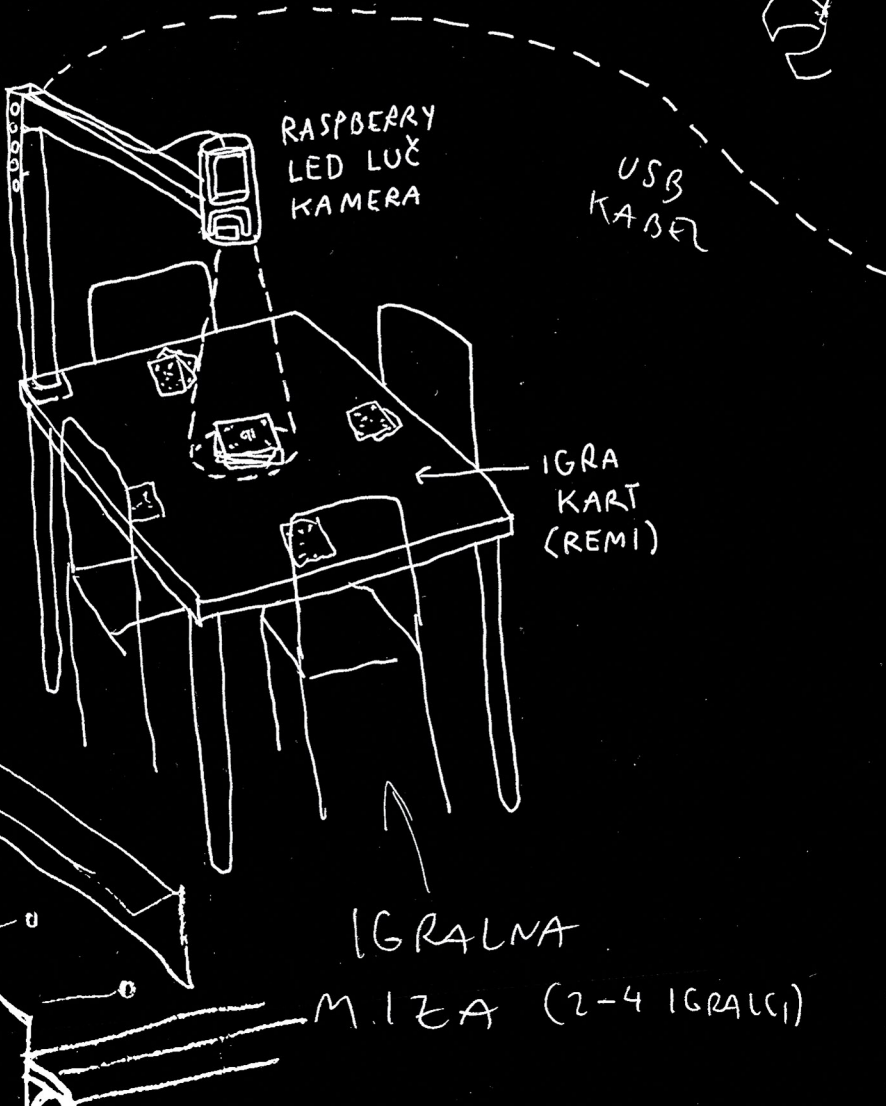 RASPBERRY
LED LUČ
KAMERA
USB
KABEL
IGRA
KART
(REMI)
IGRALNA
MIZA (2-4 IGRALCI)